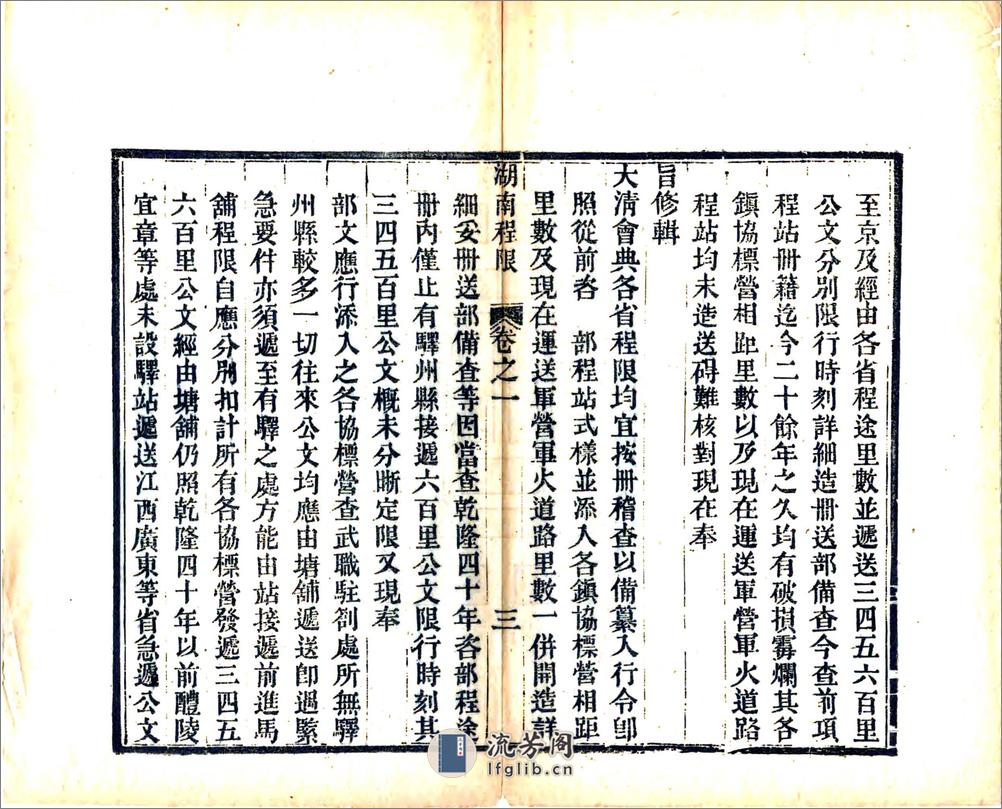 至京及經由各省程途里數並遞送三四五六百里
公文分別限行時刻詳細造冊送部備查今查前項
程站冊籍迄今二十餘年之久均有破損霉爛其各
鎮協標營相距里數以及現在運送軍營軍火道路
程站均未造送碍難核對現在奉
旨修輯
大清會典各省程限均宜按冊稽查以備纂入行令卽
照從前咨 部程站式樣並添入各鎮協標營相距
里數及現在運送軍營軍火道路里數一併開造詳
湖南程限 卷之一 三
細妥冊送部備查等因當查乾隆四十年咨部程途
冊內僅止有驛州縣接遞六百里公文限行時刻其
三四五百里公文概未分晰定限又現奉
部文應行添入之各協標營查武職駐劄處所無驛
州縣較多一切往來公文均應由塘舖遞送卽遇緊
急要件亦須遞至有驛之處方能由站接遞前進馬
舖程限自應分別扣計所有各協標營發遞三四五
六百里公文經由塘舖仍照乾隆四十年以前醴陵
宜章等處未設驛站遞送江西廣東等省急遞公文
流芳閣
lfglib.cn